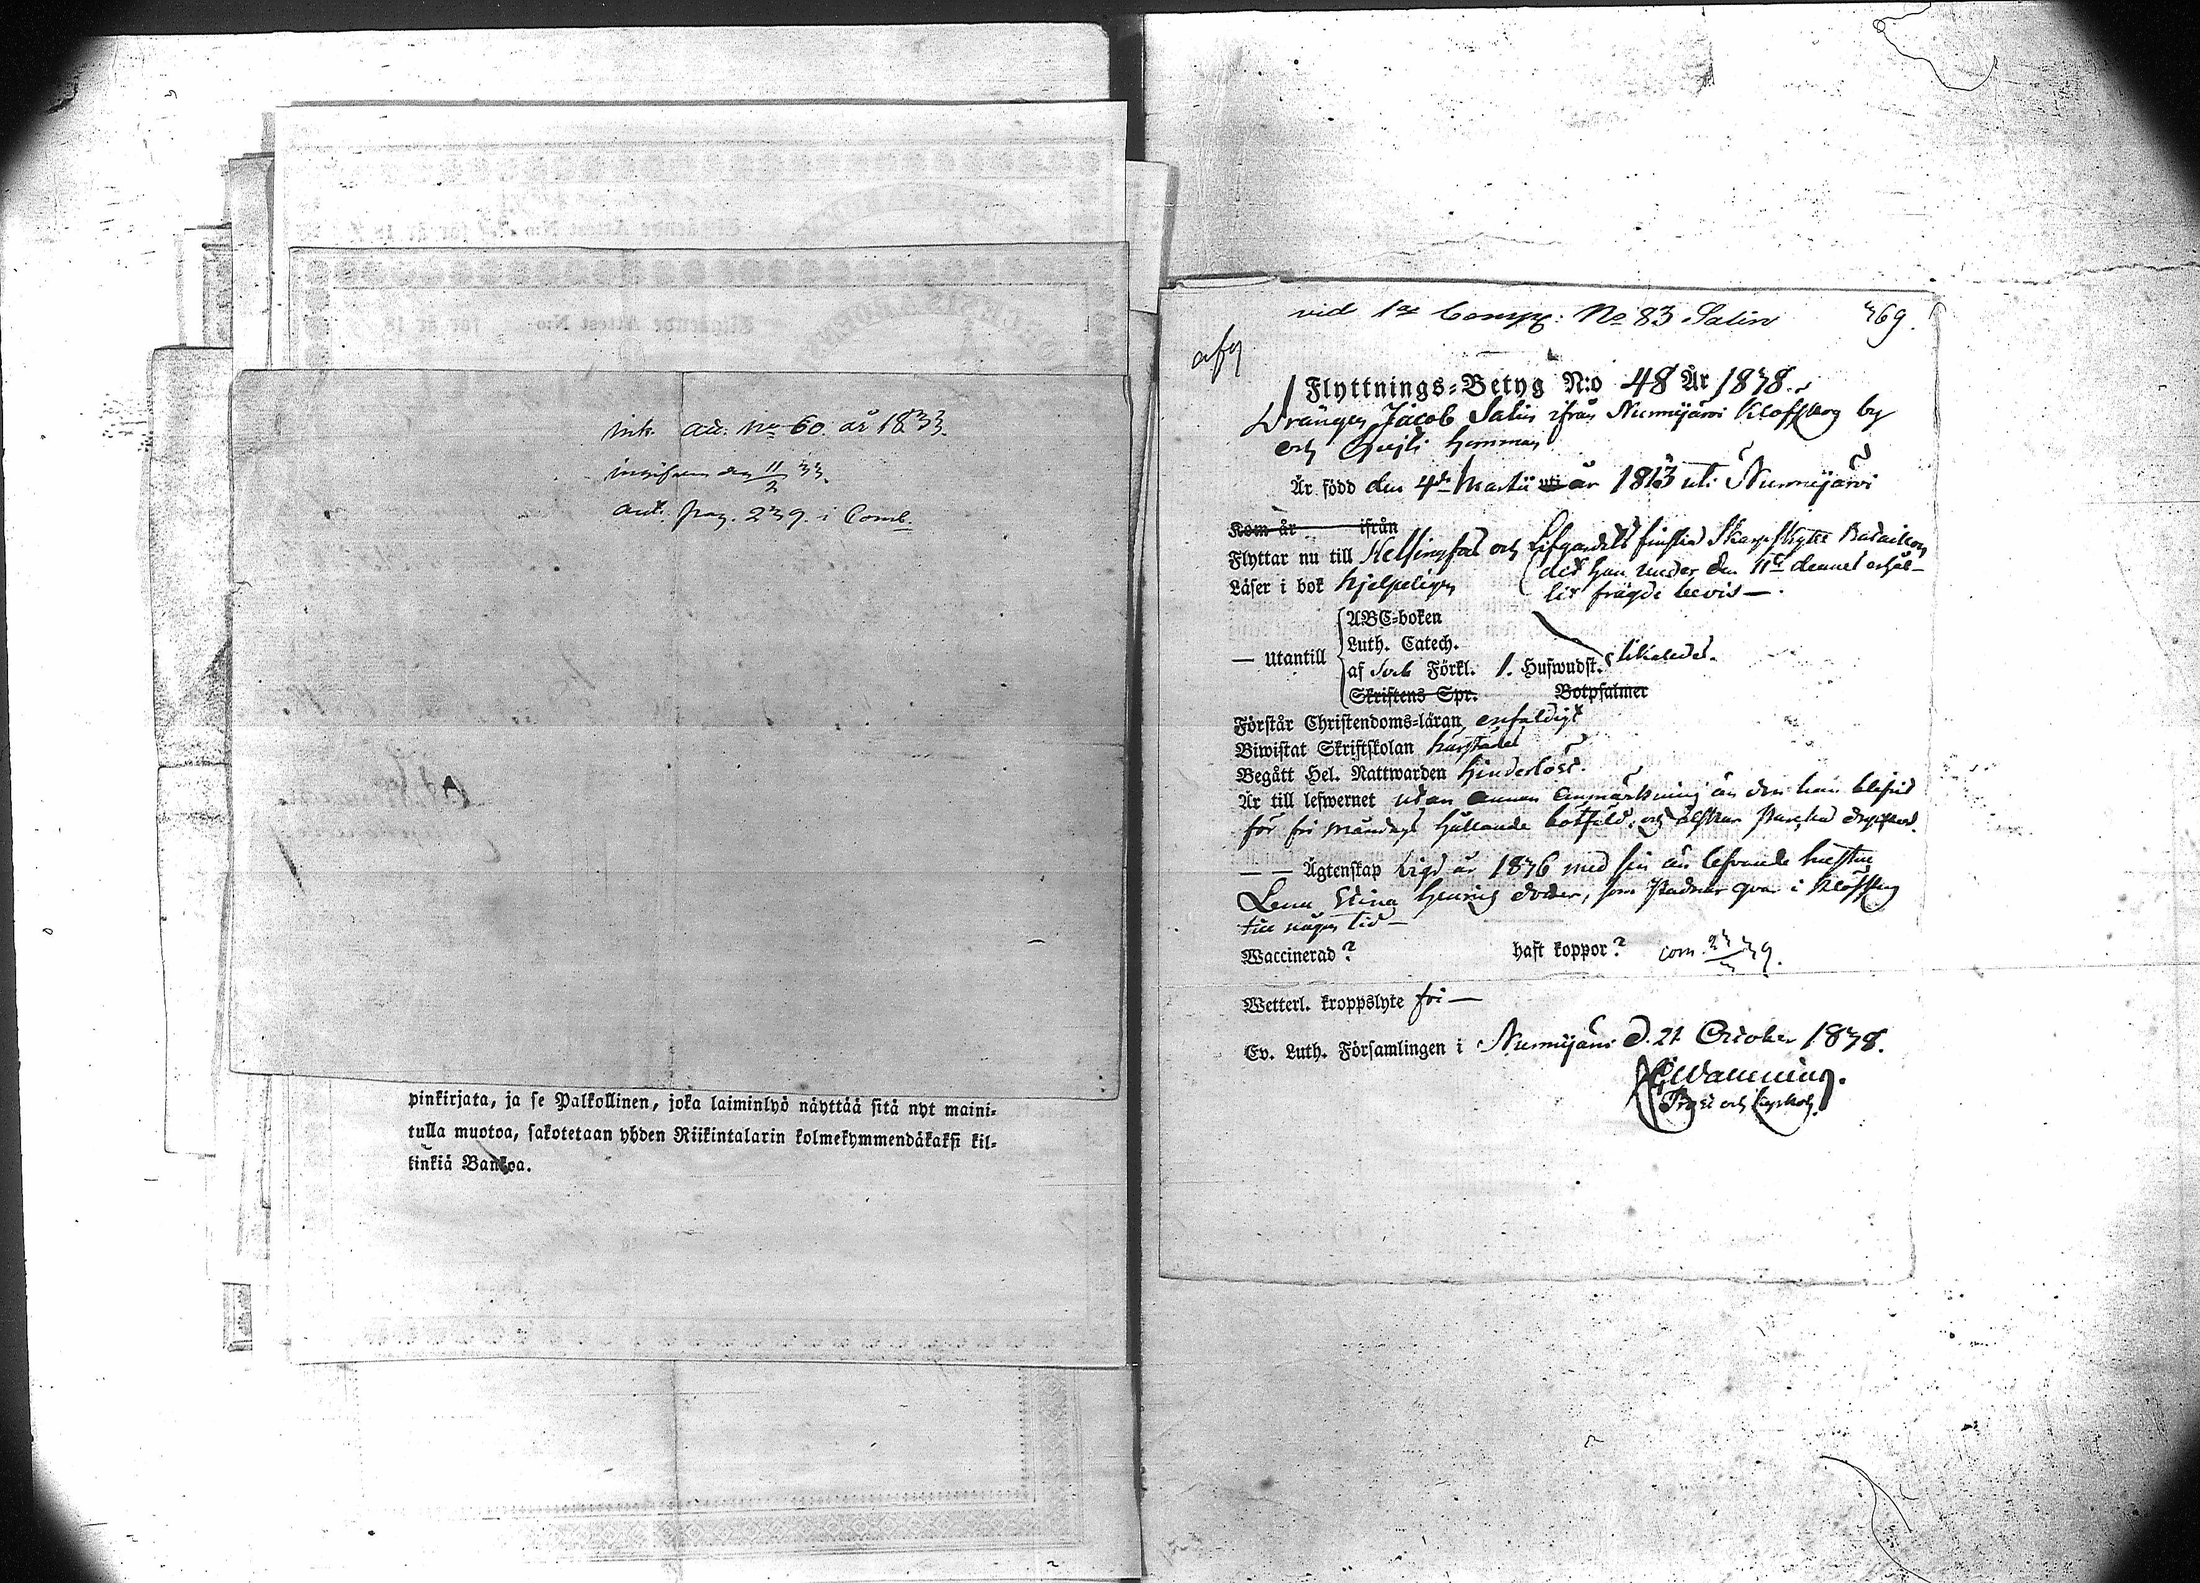 ink. att. No 60. år 1833.
inskrifven den 11/2 33.
ant. pag. 239. i Comb.
pinkirjata, ja se Palkollinen, joka laiminlyö näyttää sitä nyt maini-
tulla muotoa, sakotetaan yhden Riikintalarin kolmekymmendäkaksi kil-
linkiä Bankoa.
vid 1a Comp: No 83 Salin 369.
afg
Flyttnings-Betyg N:o 48 År 1838.
Drängen Jacob Salin ifrån Nurmijärvi Klofskog by
och hemman
Är född den 4de Martii uti år 1813 uti Nurmijärvi
Kom år ifrån
Flyttar nu till Helsingfors och Lifgardets finska Skarpskytte Bataillon
det han under den 11te dennes erhål-
Läser i bok hjelpeligen
lit frägdt bevis —.
ABC-boken
Luth. Catech.
— Utantill
af Sveb Förkl. 1. Hufwudst. likaledes.
Skriftens Spr. Botpsalmer
Förstår Christendoms-läran enfaldigt
Biwistat Skriftskolan härstädes
Begått Hel. Nattwarden hinderlöst.
Är till lefwernet utan annan anmärkning än den han blifvit
för fri måndags hållande bötfäld, och älskar starka drycker.
— — Ägtenskap vigd år 1836 med sin än lefvande hustru
Lena Stina Henrics dotter, som stadnar qvar i Klöfskog
till någon tid —
Waccinerad? haft koppor? com. 39.
Wetterl. kroppslyte fri —
Ev. Luth. Församlingen i Nurmijärvi d. 21 October 1838.
Prost och Kyrkoh.